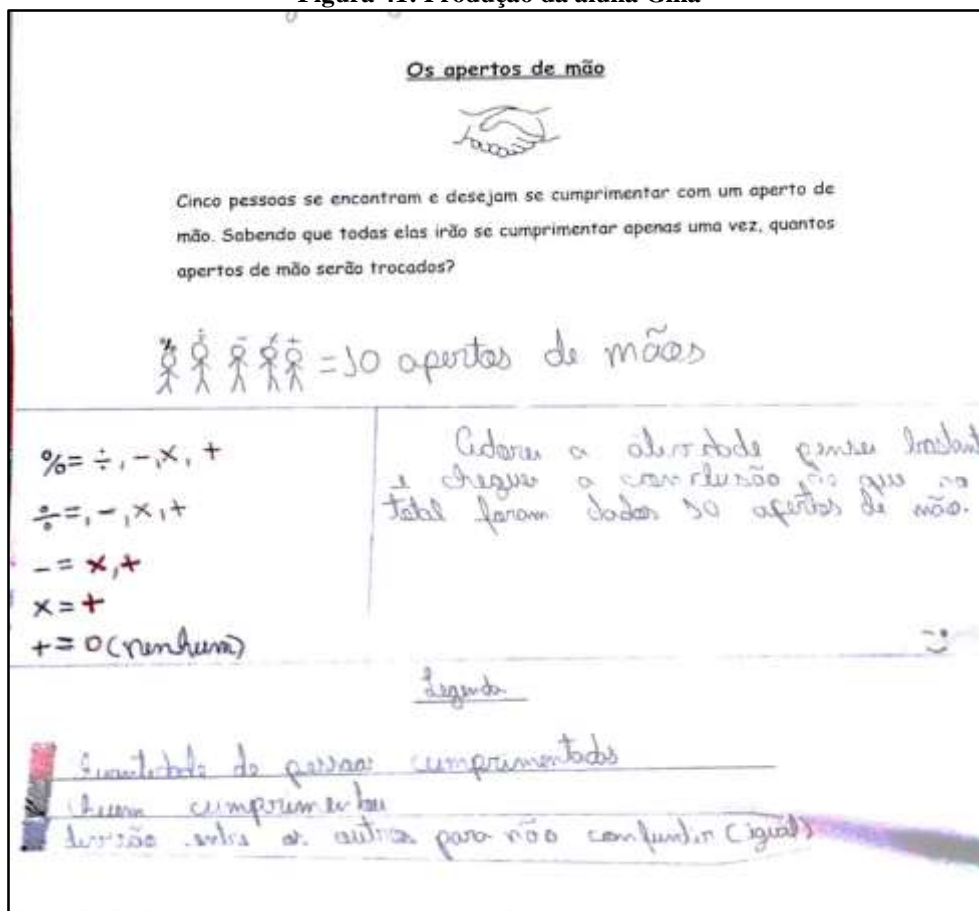 Figura 41: Produção da aluna Gina
Os apertos de mão
Cinco pessoas se encontram e desejam se cumprimentar com um aperto de
mão. Sabendo que todas elas irão se cumprimentar apenas uma vez, quantos
apertos de mão serão trocados?
% ÷ - x +
= 10 apertos de mãos
%= ÷, -, x, +
÷=, -, x, +
-= x, +
x= +
+= 0 (nenhum)
a pensei
e cheguei a conclusão que no
total foram dados 10 apertos de mão.
Legenda
Quantidade de pessoas cumprimentadas
Quem cumprimentou
divisão entre os outros para não confundir (igual)